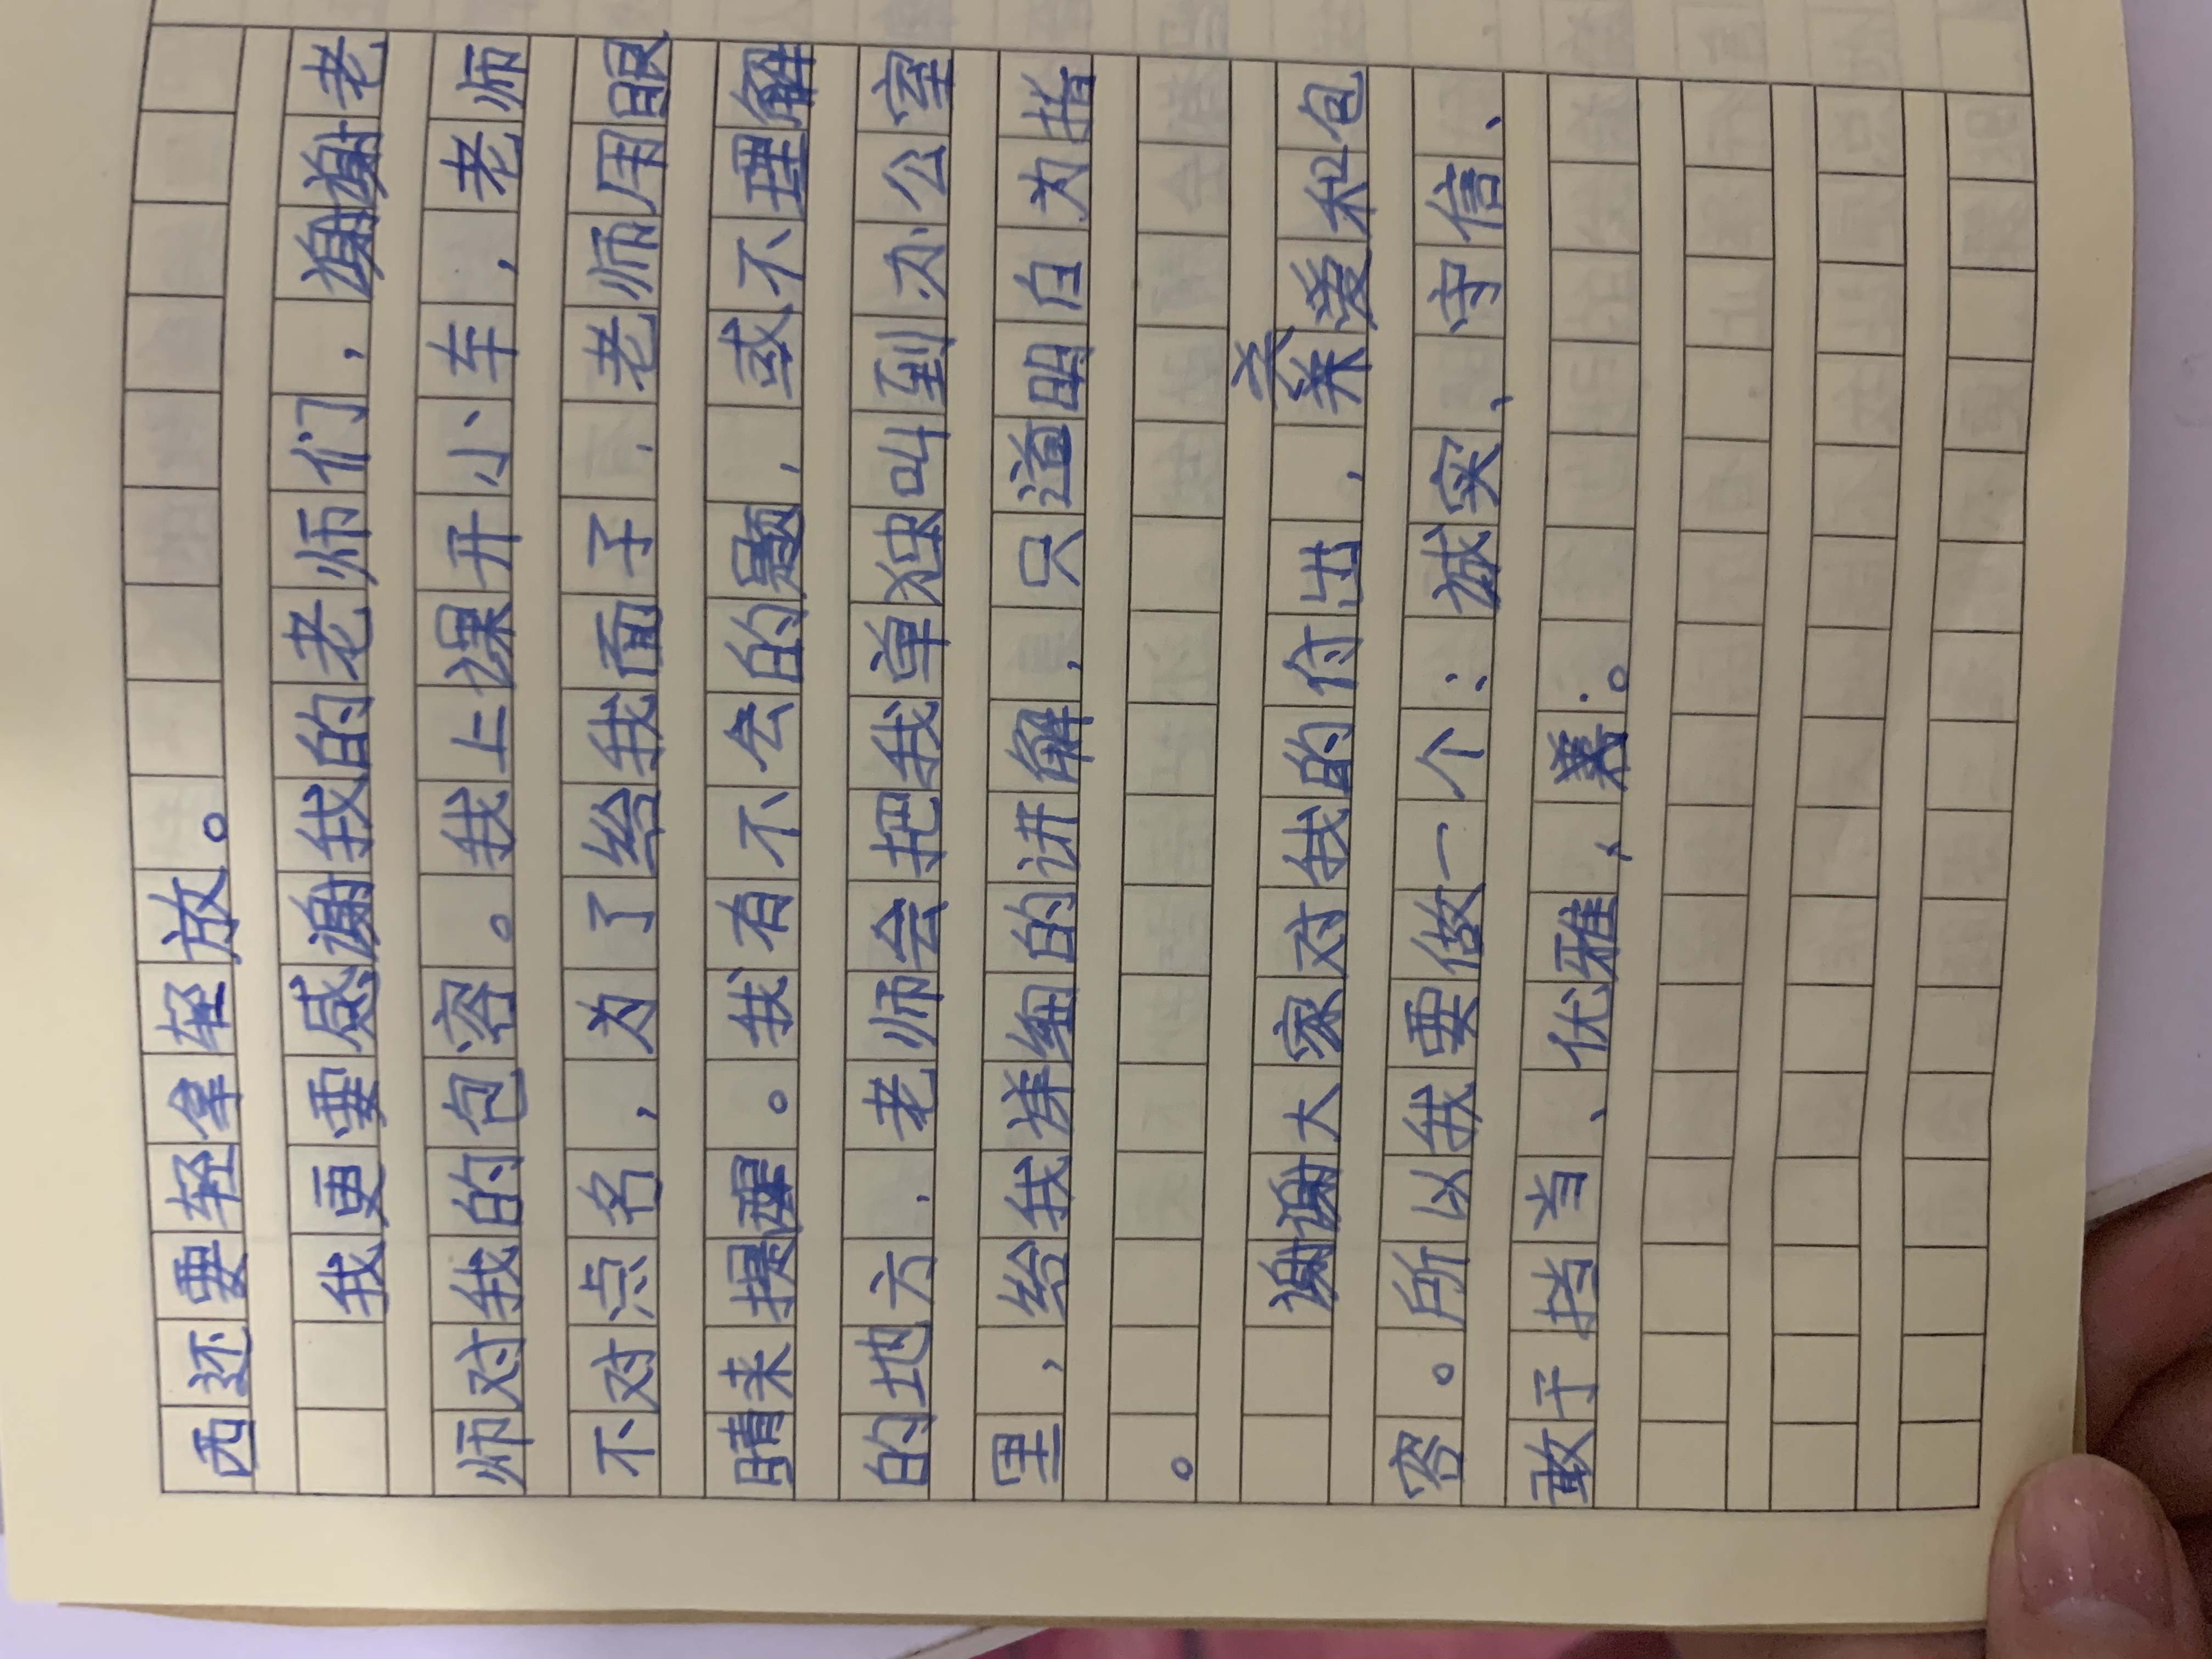 西还要轻拿轻放。
我更要感谢我的老师们，谢谢老
师对我的包容。我上课开小车，老师
不对点名，为了给我面子，老师用眼
睛来提醒。我有不会的题，或不理解
的地方，老师会把我单独叫到办公室
里，给我详细的讲解，只道明白为指
。
谢谢大家对我的付出，关爱和包
容。所以我要做一个：诚实、守信、
敢于挡当、优雅，善。